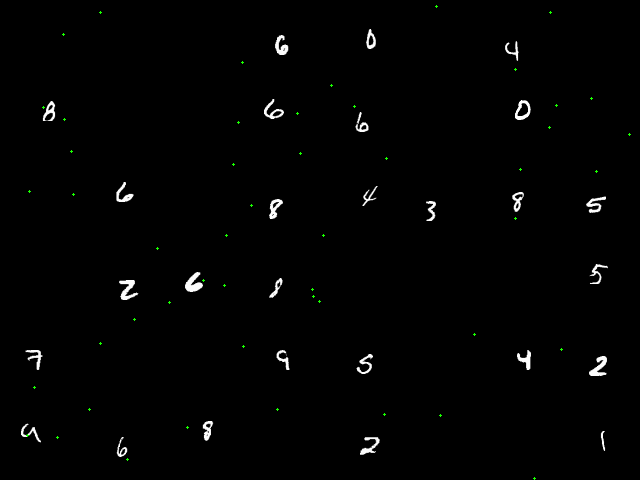 6 0 4
8 6 6 0
6 8 4 3 8 5
2 6 8 5
7 9 5 4 2
9 6 8 2 1